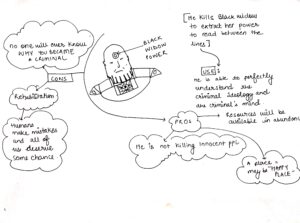 no one will ever know
WHY YOU BECAME
A CRIMINAL
CONS
Rehabilitation
Humans
make mistakes
and all of
us deserve
some chance
BLACK
WIDOW
POWER
[He kills Black Widow
to extract her power
to read between the
lines]
USE:
He is able to perfectly
understand the
criminal ideology and
the criminal's mind
PROS
Resources will be
available in abundance
He is not killing innocent ppl
A place
may be "HAPPY
PLACE"